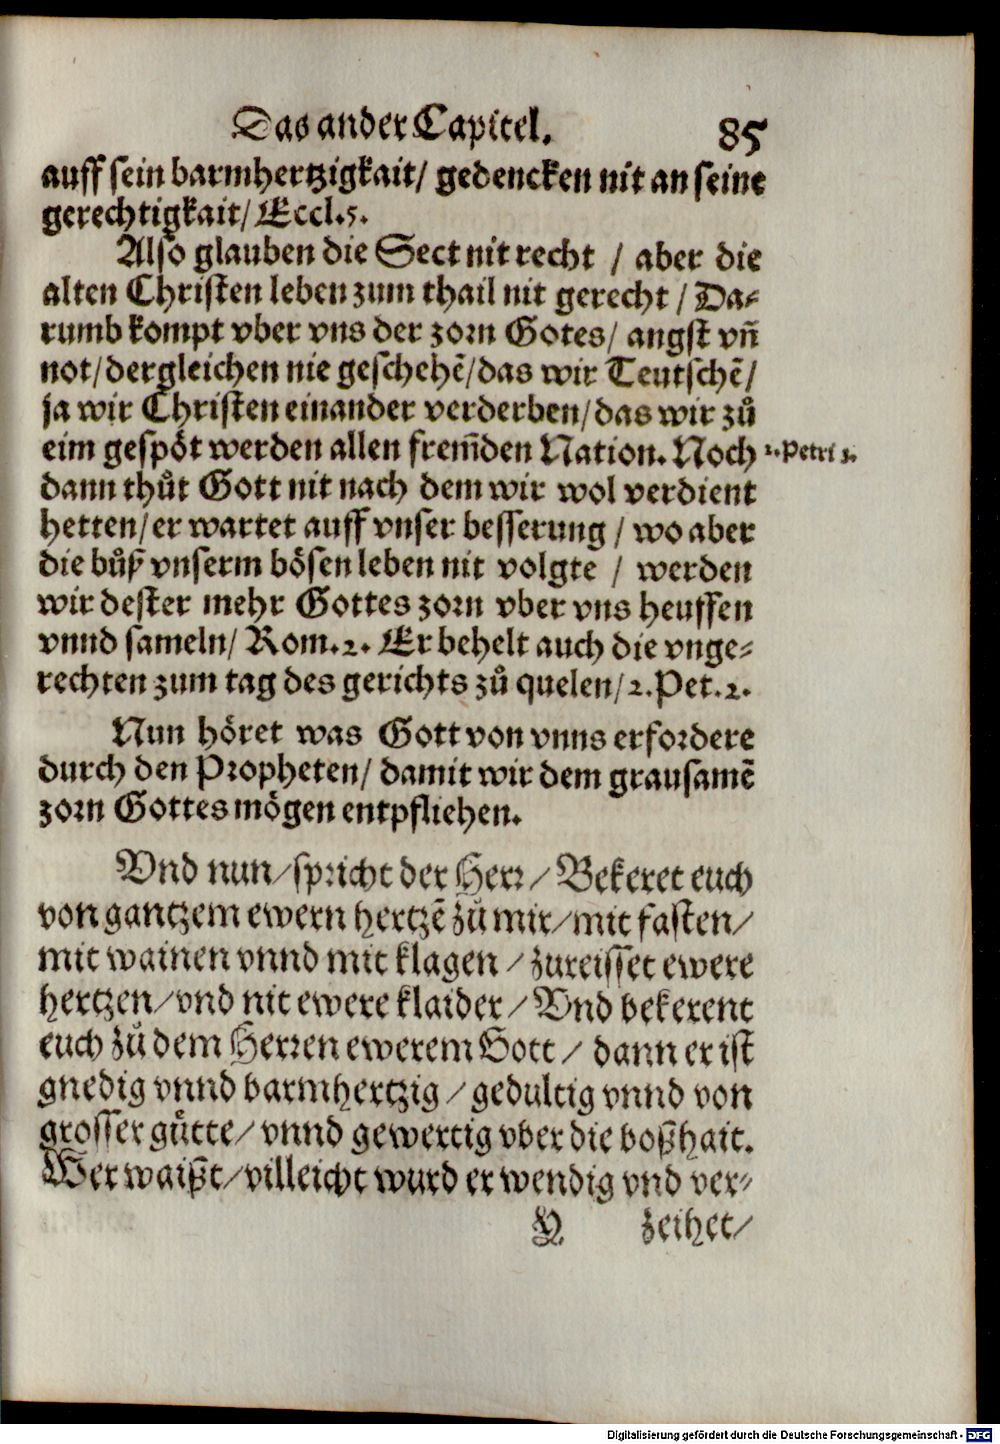 Das ander Capitel. 85
auff sein barmhertzigkait/ gedencken nit an seine
gerechtigkait/ Eccl.5.
Also glauben die Sect nit recht / aber die
alten Christen leben zum thail nit gerecht / Da⸗
rumb kompt vber vns der zorn Gotes/ angst vñ
not/ dergleichen nie geschehẽ/ das wir Teutschẽ/
ja wir Christen einander verderben/ das wir zů
eim gespöt werden allen frem̃den Nation. Noch
2.Petri 3.
dann thůt Gott nit nach dem wir wol verdient
hetten/ er wartet auff vnser besserung / wo aber
die bůß vnserm bösen leben nit volgte / werden
wir dester mehr Gottes zorn vber vns heuffen
vnnd sameln/ Rom.2. Er behelt auch die vnge⸗
rechten zum tag des gerichts zů quelen/ 2.Pet.2.
Nun höret was Gott von vnns erfordere
durch den Propheten/ damit wir dem grausamẽ
zorn Gottes mögen entpfliehen.
Vnd nun/ spricht der Herr/ Bekeret euch
von gantzem ewern hertzẽ zů mir/ mit fasten/
mit wainen vnnd mit klagen / zureisset ewere
hertzen/ vnd nit ewere klaider/ Vnd bekerent
euch zů dem Herren ewerem Gott / dann er ist
gnedig vnnd barmhertzig / gedultig vnnd von
grosser gůtte/ vnnd gewertig vber die boßhait.
Wer waißt/ villeicht wurd er wendig vnd ver⸗
H zeihet/
Digitalisierung gefördert durch die Deutsche Forschungsgemeinschaft - DFG